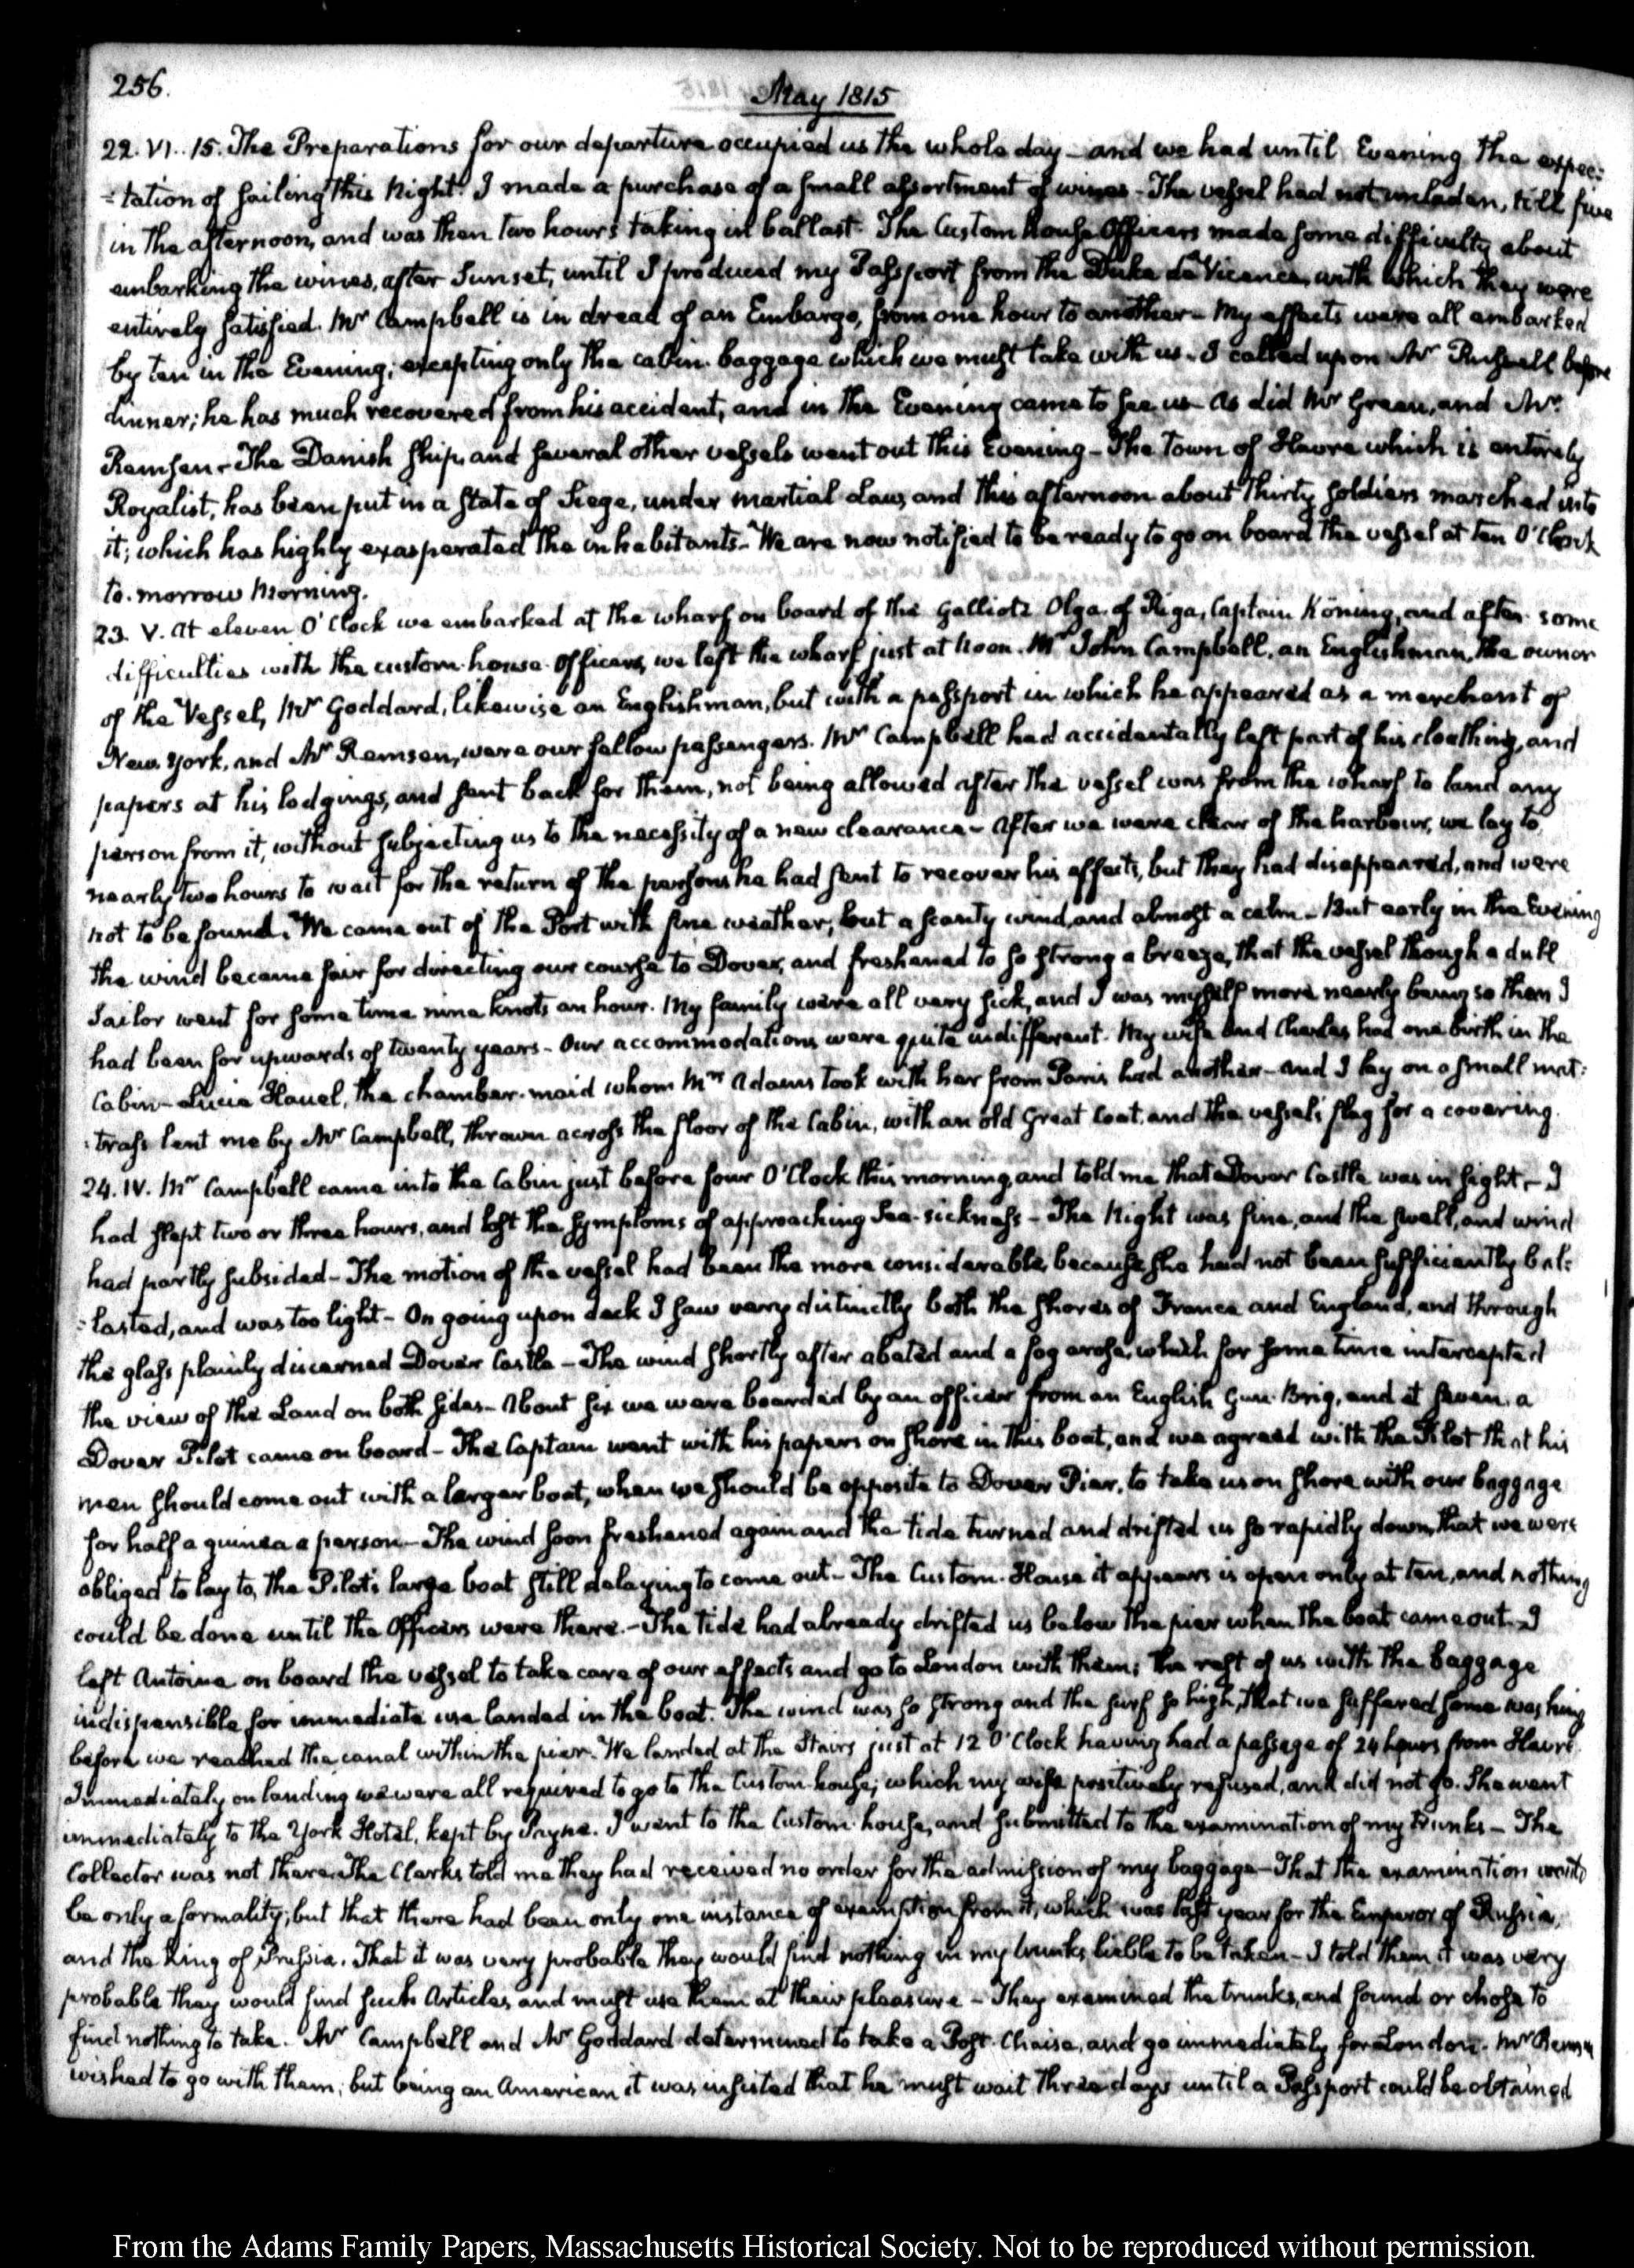 256.
May 1815
22. VI. 15. The Preparations for our departure occupied us the whole day – and we had until Evening the expec:
:tation of sailing this Night. I made a purchase of a small assortment of wines – The vessel had not unladen, till five
in the afternoon, and was then two hours taking in ballast. The Custom House Officers made some difficulty about
embarking the wines, after Sunset, until I produced my Passport from the Duke de Vicence, with which they were
entirely satisfied. Mr Campbell is in dread of an Embargo, from one hour to another – My effects were all embarked
by ten in the Evening; excepting only the cabin baggage which we must take with us – I called upon Mr Russell before
dinner; he has much recovered from his accident, and in the Evening came to see us – As did Mr Green, and Mr
Remsen – The Danish ship, and several other vessels went out this Evening – The Town of Havre which is entirely
Royalist, has been put in a state of Siege, under martial Law, and this afternoon about thirty soldiers marched into
it; which has highly exasperated the inhabitants – We are now notified to be ready to go on board the vessel at ten O'Clock
to-morrow Morning.
23. V. At eleven O'Clock we embarked at the wharf on board of the Galliot Olga of Riga, Captain Köning, and after some
difficulties with the custom-house Officers, we left the wharf just at Noon. Mr John Campbell, an Englishman, the owner
of the Vessel, Mr Goddard, likewise an Englishman, but with a passport in which he appeared as a merchant of
New York, and Mr Remsen, were our fellow passengers. Mr Campbell had accidentally left part of his cloathing, and
papers at his lodgings, and sent back for them, not being allowed after the vessel was from the wharf to land any
person from it, without subjecting us to the necessity of a new clearance – After we were clear of the harbour, we lay to
nearly two hours to wait for the return of the persons he had sent to recover his effects, but they had disappeared, and were
not to be found. We came out of the Port with fine weather, but a scanty wind, and almost a calm – But early in the Evening
the wind became fair for directing our course to Dover, and freshened to so strong a breeze, that the vessel though a dull
sailor went for some time nine knots an hour. My family were all very sick, and I was myself more nearly being so than I
had been for upwards of twenty years – Our accommodations were quite indifferent. My wife and Charles had one birth in the
Cabin – Lucie Hauel, the chamber-maid whom Mrs Adams took with her from Paris had another – and I lay on a small mat:
:trass lent me by Mr Campbell, thrown across the floor of the Cabin, with an old Great Coat, and the vessel's flag for a covering.
24. IV. Mr Campbell came into the Cabin just before four O'Clock this morning, and told me that Dover Castle was in sight – I
had slept two or three hours, and lost the symptoms of approaching Sea-sickness – The Night was fine, and the swell, and wind
had partly subsided – The motion of the vessel had been the more considerable, because she had not been sufficiently bal:
:lasted, and was too light – On going upon deck I saw very distinctly both the shores of France and England, and through
the glass plainly discerned Dover Castle – The wind shortly after abated and a fog arose, which for some time intercepted
the view of the Land on both sides – About six we were boarded by an officer from an English Gun-Brig, and at seven, a
Dover Pilot came on board – The Captain went with his papers on shore in this boat, and we agreed with the Pilot that his
men should come out with a larger boat, when we should be opposite to Dover Pier, to take us on shore with our baggage
for half a guinea a person – The wind soon freshened again and the tide turned and drifted us so rapidly down, that we were
obliged to lay to, the Pilot's large boat still delaying to come out – The Custom-House it appears is open only at ten, and nothing
could be done until the Officers were there. – The tide had already drifted us below the pier when the boat came out – I
left Antoine on board the vessel to take care of our effects and go to London with them; the rest of us with the baggage
indispensible for immediate use landed in the boat. The wind was so strong and the surf so high, that we suffered some washing
before we reached the canal within the pier. We landed at the Stairs just at 12 O'Clock having had a passage of 24 hours from Havre.
Immediately on landing we were all required to go to the Custom-house; which my wife positively refused, and did not go. She went
immediately to the York Hotel, kept by Payne. I went to the Custom-house, and submitted to the examination of my trunks – The
Collector was not there. The Clerks told me they had received no order for the admission of my baggage – That the examination would
be only a formality; but that there had been only one instance of exemption from it, which was last year for the Emperor of Russia,
and the King of Prussia. That it was very probable they would find nothing in my trunks liable to be taken – I told them it was very
probable they would find such Articles, and must use them at their pleasure – They examined the trunks, and found or chose to
find nothing to take. Mr Campbell and Mr Goddard determined to take a Post-Chaise, and go immediately for London. Mr Remsen
wished to go with them; but being an American it was insisted that he must wait three days until a Passport could be obtained
From the Adams Family Papers, Massachusetts Historical Society. Not to be reproduced without permission.